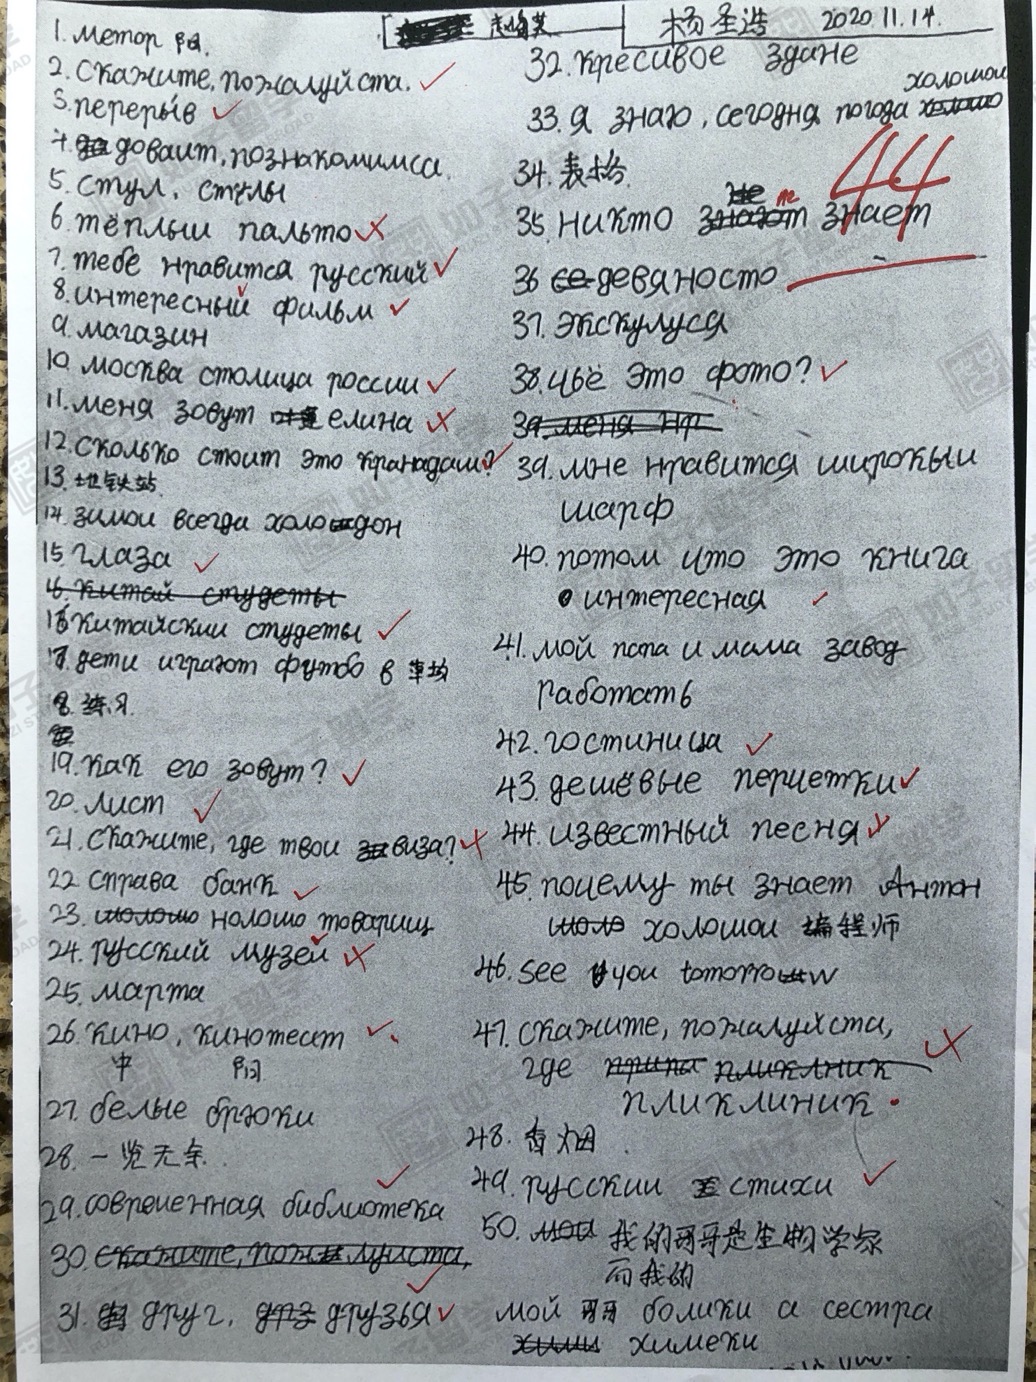 杨圣浩 2020.11.14.
1. метор 阳.
2. скажите, пожалуйста.
3. перерыв
4. доваит, познакомимса.
5. стул. стулы
6. тёплыи пальто
7. тебе нравится русский
8. интересный фильм
9. магазин
10. москва столица россии
11. меня зовут елина
12. сколько стоит это кранадаш?
13. 地铁站.
14. зимои всегда холодон
15. глаза
16. Китай студеты
16 китайскии студеты
17. дети играют футбо в 草场
18. 练习.
19. как его зовут?
20. лист
21. скажите, где твои виза?
22 справа банк
23. нолошо товарищ
24. русский музей
25. марта
26. кино, кинотеат
中 阳
27. белые брюки
28. 一览无余.
29. современная библиотека
30. скажите, пожалуиста,
31. друг, друзья
32. кресивое здане
холошои
33. я знаю, сегодня погода
34. 表格.
не
35. никто знает
36 девяносто
37. экскулуся
38. чьё это фото?
39. меня нр
39. мне нравится широкыи
шарф
40. потом что это книга
интересная
41. мой папа и мама завод
работать
42. гостиница
43. дешёвые перчетки
44. известный песня
45. почему ты знает Антон
холошои 编程师
46. see you tomorrow
47. скажите, пожалуйста,
где пликлник
пликлиник.
48. 香烟.
49. русскии стихи
50. 我的哥哥是生物学家
而我的
мой 哥哥 болики а сестра
химеки
44